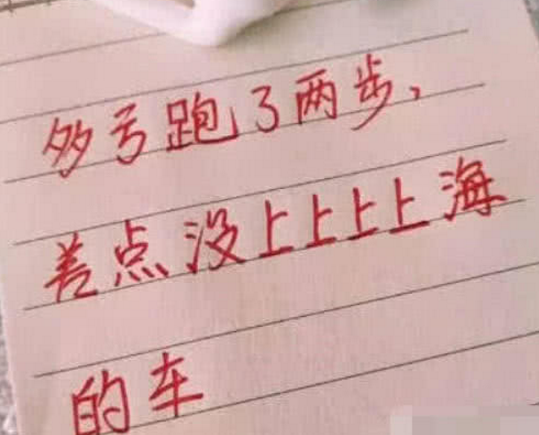 多亏跑了两步、
差点没上上上上海
的车